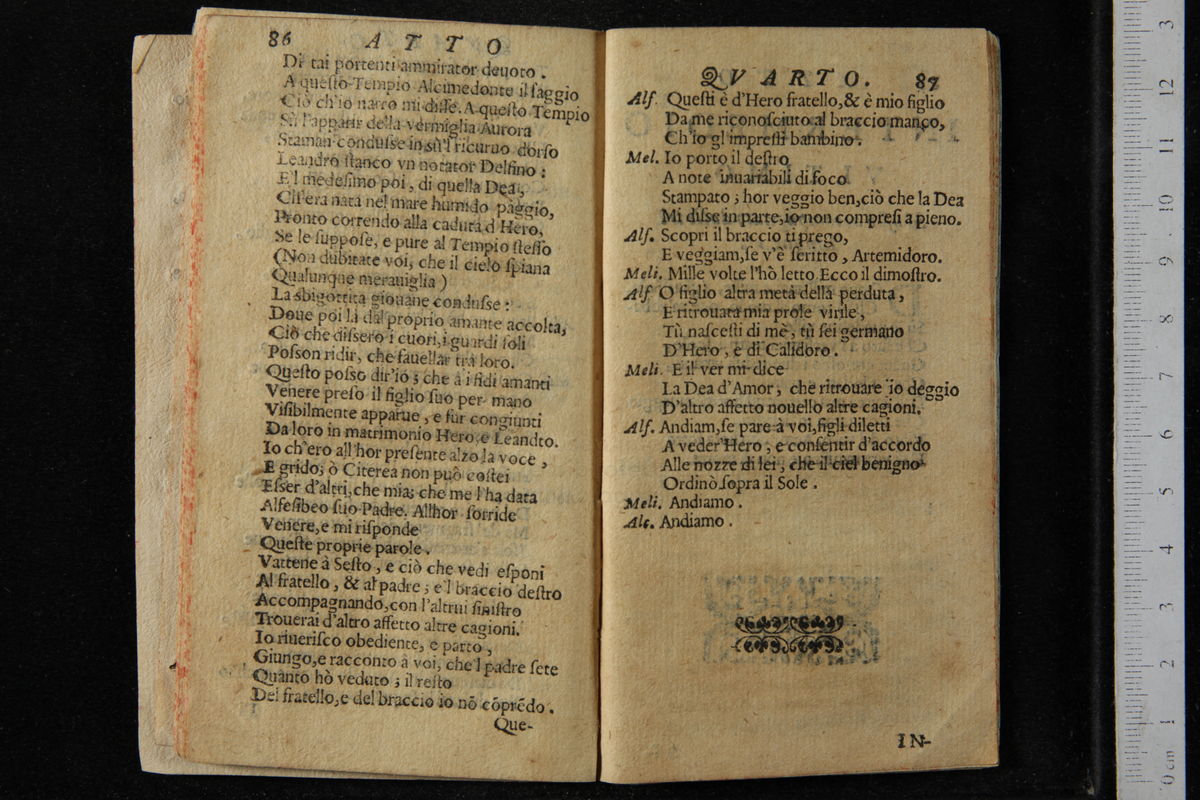 86 ATTO
Di tai portenti ammirator deuoto.
A questo Tempio Alcimedonte il saggio
Ciò ch'io narro mi disse. A questo Tempio
Sù l'apparir della vermiglia Aurora
Staman condusse in sù'l ricuruo dorso
Leandro stanco vn notator Delfino:
E'l medesimo poi, di quella Dea,
Ch'era nata nel mare humido paggio,
Pronto correndo alla caduta d'Hero,
Se le suppose, e pure al Tempio stesso
(Non dubitate voi, che il cielo spiana
Qualunque merauiglia)
La sbigottita giouane condusse:
Doue poi là dal proprio amante accolta,
Ciò che dissero i cuori, i guardi soli
Posson ridir, che fauellar trà loro.
Questo posso dir'io; che à i fidi amanti
Venere preso il figlio suo per mano
Visibilmente apparue, e fùr congiunti
Da loro in matrimonio Hero, e Leandro.
Io ch'ero all'hor presente alzo la voce,
E grido; ò Citerea non può costei
Esser d'altri, che mia; che me l'ha data
Alfesibeo suo Padre. Allhor sorride
Venere, e mi risponde
Queste proprie parole.
Vattene à Sesto, e ciò che vedi esponi
Al fratello, & al padre; e'l braccio destro
Accompagnando, con l'altrui sinistro
Trouerai d'altro affetto altre cagioni.
Io riuerisco obediente, e parto,
Giungo, e racconto à voi, che'l padre sete
Quanto hò veduto; il resto
Del fratello, e del braccio io nõ cõprẽdo.
Que-
QVARTO. 87
Alf. Questi è d'Hero fratello, & è mio figlio
Da me riconosciuto al braccio manco,
Ch'io gl'impressi bambino.
Mel. Io porto il destro
A note inuariabili di foco
Stampato; hor veggio ben, ciò che la Dea
Mi disse in parte, io non compresi a pieno.
Alf. Scopri il braccio ti prego,
E veggiam, se v'è scritto, Artemidoro.
Meli. Mille volte l'hò letto. Ecco il dimostro.
Alf. O figlio altra metà della perduta,
E ritrouata mia prole virile,
Tù nascesti di me, tù sei germano
D'Hero, e di Calidoro.
Meli. E il ver mi dice
La Dea d'Amor, che ritrouare io deggio
D'altro affetto nouello altre cagioni.
Alf. Andiam, se pare à voi, figli diletti
A veder'Hero, e consentir d'accordo
Alle nozze di lei, che il ciel benigno
Ordinò sopra il Sole.
Meli. Andiamo.
Alc. Andiamo.
IN-
0 cm 1 2 3 4 5 6 7 8 9 10 11 12 13